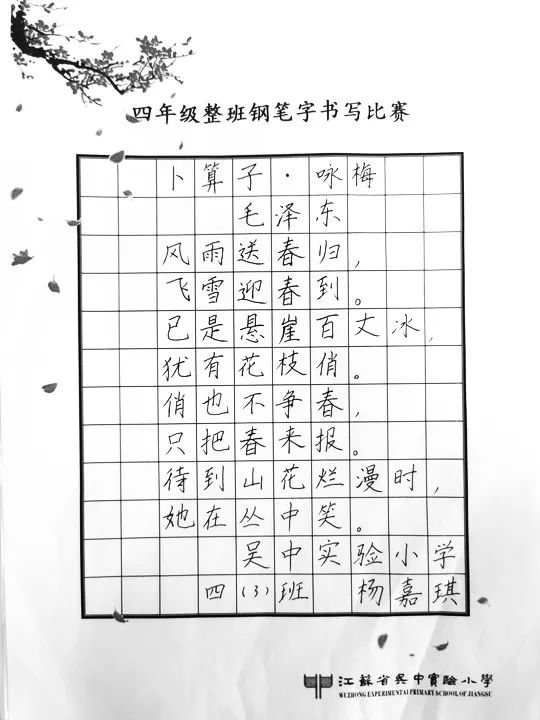 四年级整班钢笔字书写比赛
卜算子·咏梅
毛泽东
风雨送春归，
飞雪迎春到。
已是悬崖百丈冰，
犹有花枝俏。
俏也不争春，
只把春来报。
待到山花烂漫时，
她在丛中笑。
吴中实验小学
四(3)班 杨嘉琪
江蘇省吳中實驗小學
WUZHONG EXPERIMENTAL PRIMARY SCHOOL OF JIANGSU